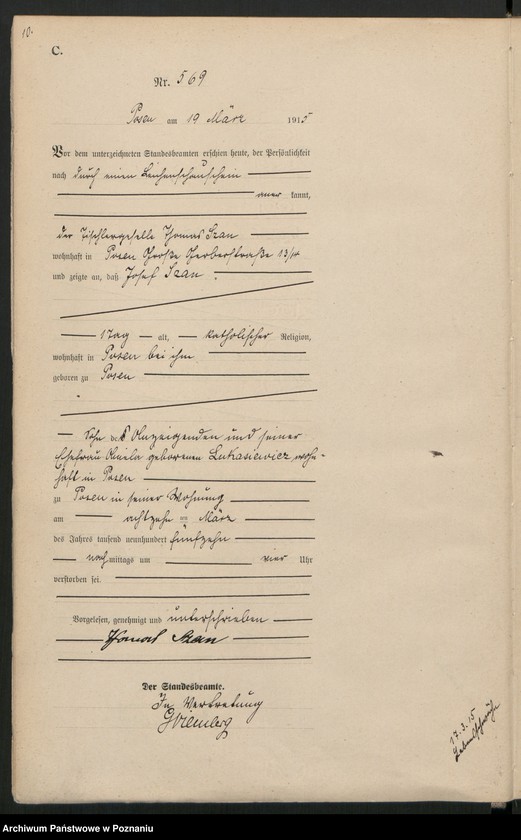 10.
C.
Nr. 569
Posen am 19 März 1915
Vor dem unterzeichneten Standesbeamten erschien heute, der Persönlichkeit
nach durch einen Leichenschauschein
aner kannt,
der Tischlergeselle Thomas Szan
wohnhaft in Posen Große Gerberstraße 13/14
und zeigte an, daß Josef Szan
1 Tag alt, katholischer Religion,
wohnhaft in Posen bei ihm
geboren zu Posen
Sohn des Anzeigenden und seiner
Ehefrau geborenen Lukasiewicz wohn-
haft in Posen
zu Posen in seiner Wohnung
am achtzehn ten März
des Jahres tausend neunhundert fünfzehn
nachmittags um vier Uhr
verstorben sei.
Vorgelesen, genehmigt und unterschrieben
Szan
Der Standesbeamte.
In Vertretung
17.3.15
Archiwum Państwowe w Poznaniu